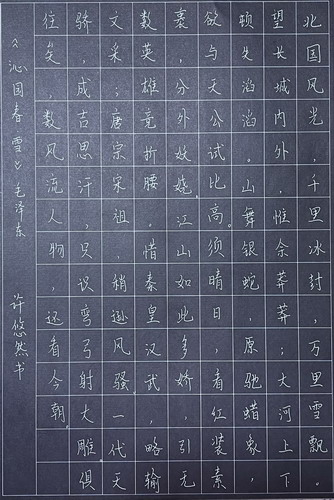 北国风光，千里冰封，万里雪飘。
望长城内外，惟余莽莽；大河上下，
顿失滔滔。山舞银蛇，原驰蜡象，
欲与天公试比高。须晴日，看红装素
裹，分外妖娆。江山如此多娇，引无
数英雄竞折腰。惜秦皇汉武，略输
文采；唐宗宋祖，稍逊风骚。一代天
骄，成吉思汗，只识弯弓射大雕。俱
往矣，数风流人物，还看今朝。
《沁园春 雪》毛泽东 许悠然书